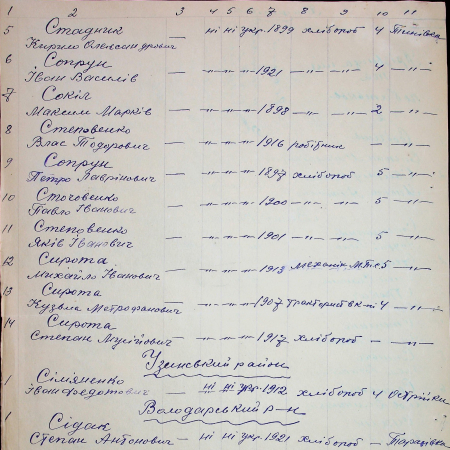 1 2 3 4 5 6 7 8 9 10 11
5 Стадник
Кирило Олександрович — ні ні укр. 1899 хлібороб 4 Тинівка
6 Сопрун
Іван Василів — -"- -"- -"- 1921 -"- -"- 4 -"-
7 Сокіл
Максим Марків — -"- -"- -"- 1898 -"- -"- 2 -"-
8 Степовенко
Влас Тодорович — -"- -"- -"- 1916 робітник — -"-
9 Сопрун
Петро Лаврінович — -"- -"- -"- 1897 хлібороб 5 -"-
10 Стоговенко
Павло Іванович — -"- -"- -"- 1900 -"- -"- 5 -"-
11 Степовенко
Яків Іванович — -"- -"- -"- 1901 -"- -"- 5 -"-
12 Сирота
Михайло Іванович — -"- -"- -"- 1913 механік М.т.с 5 -"-
13 Сирота
Кузьма Метрофанович — -"- -"- -"- 1907 тракторист 4 -"-
14 Сирота
Степан — -"- -"- -"- 1917 хлібороб — -"-
Узинський район
1 Сіляненко
Іван Федотович — ні ні укр. 1912 хлібороб 4 Острійки
Володарський р-н
1 Сідак
Степан Антонович — ні ні укр. 1921 хлібороб — Тарасівка